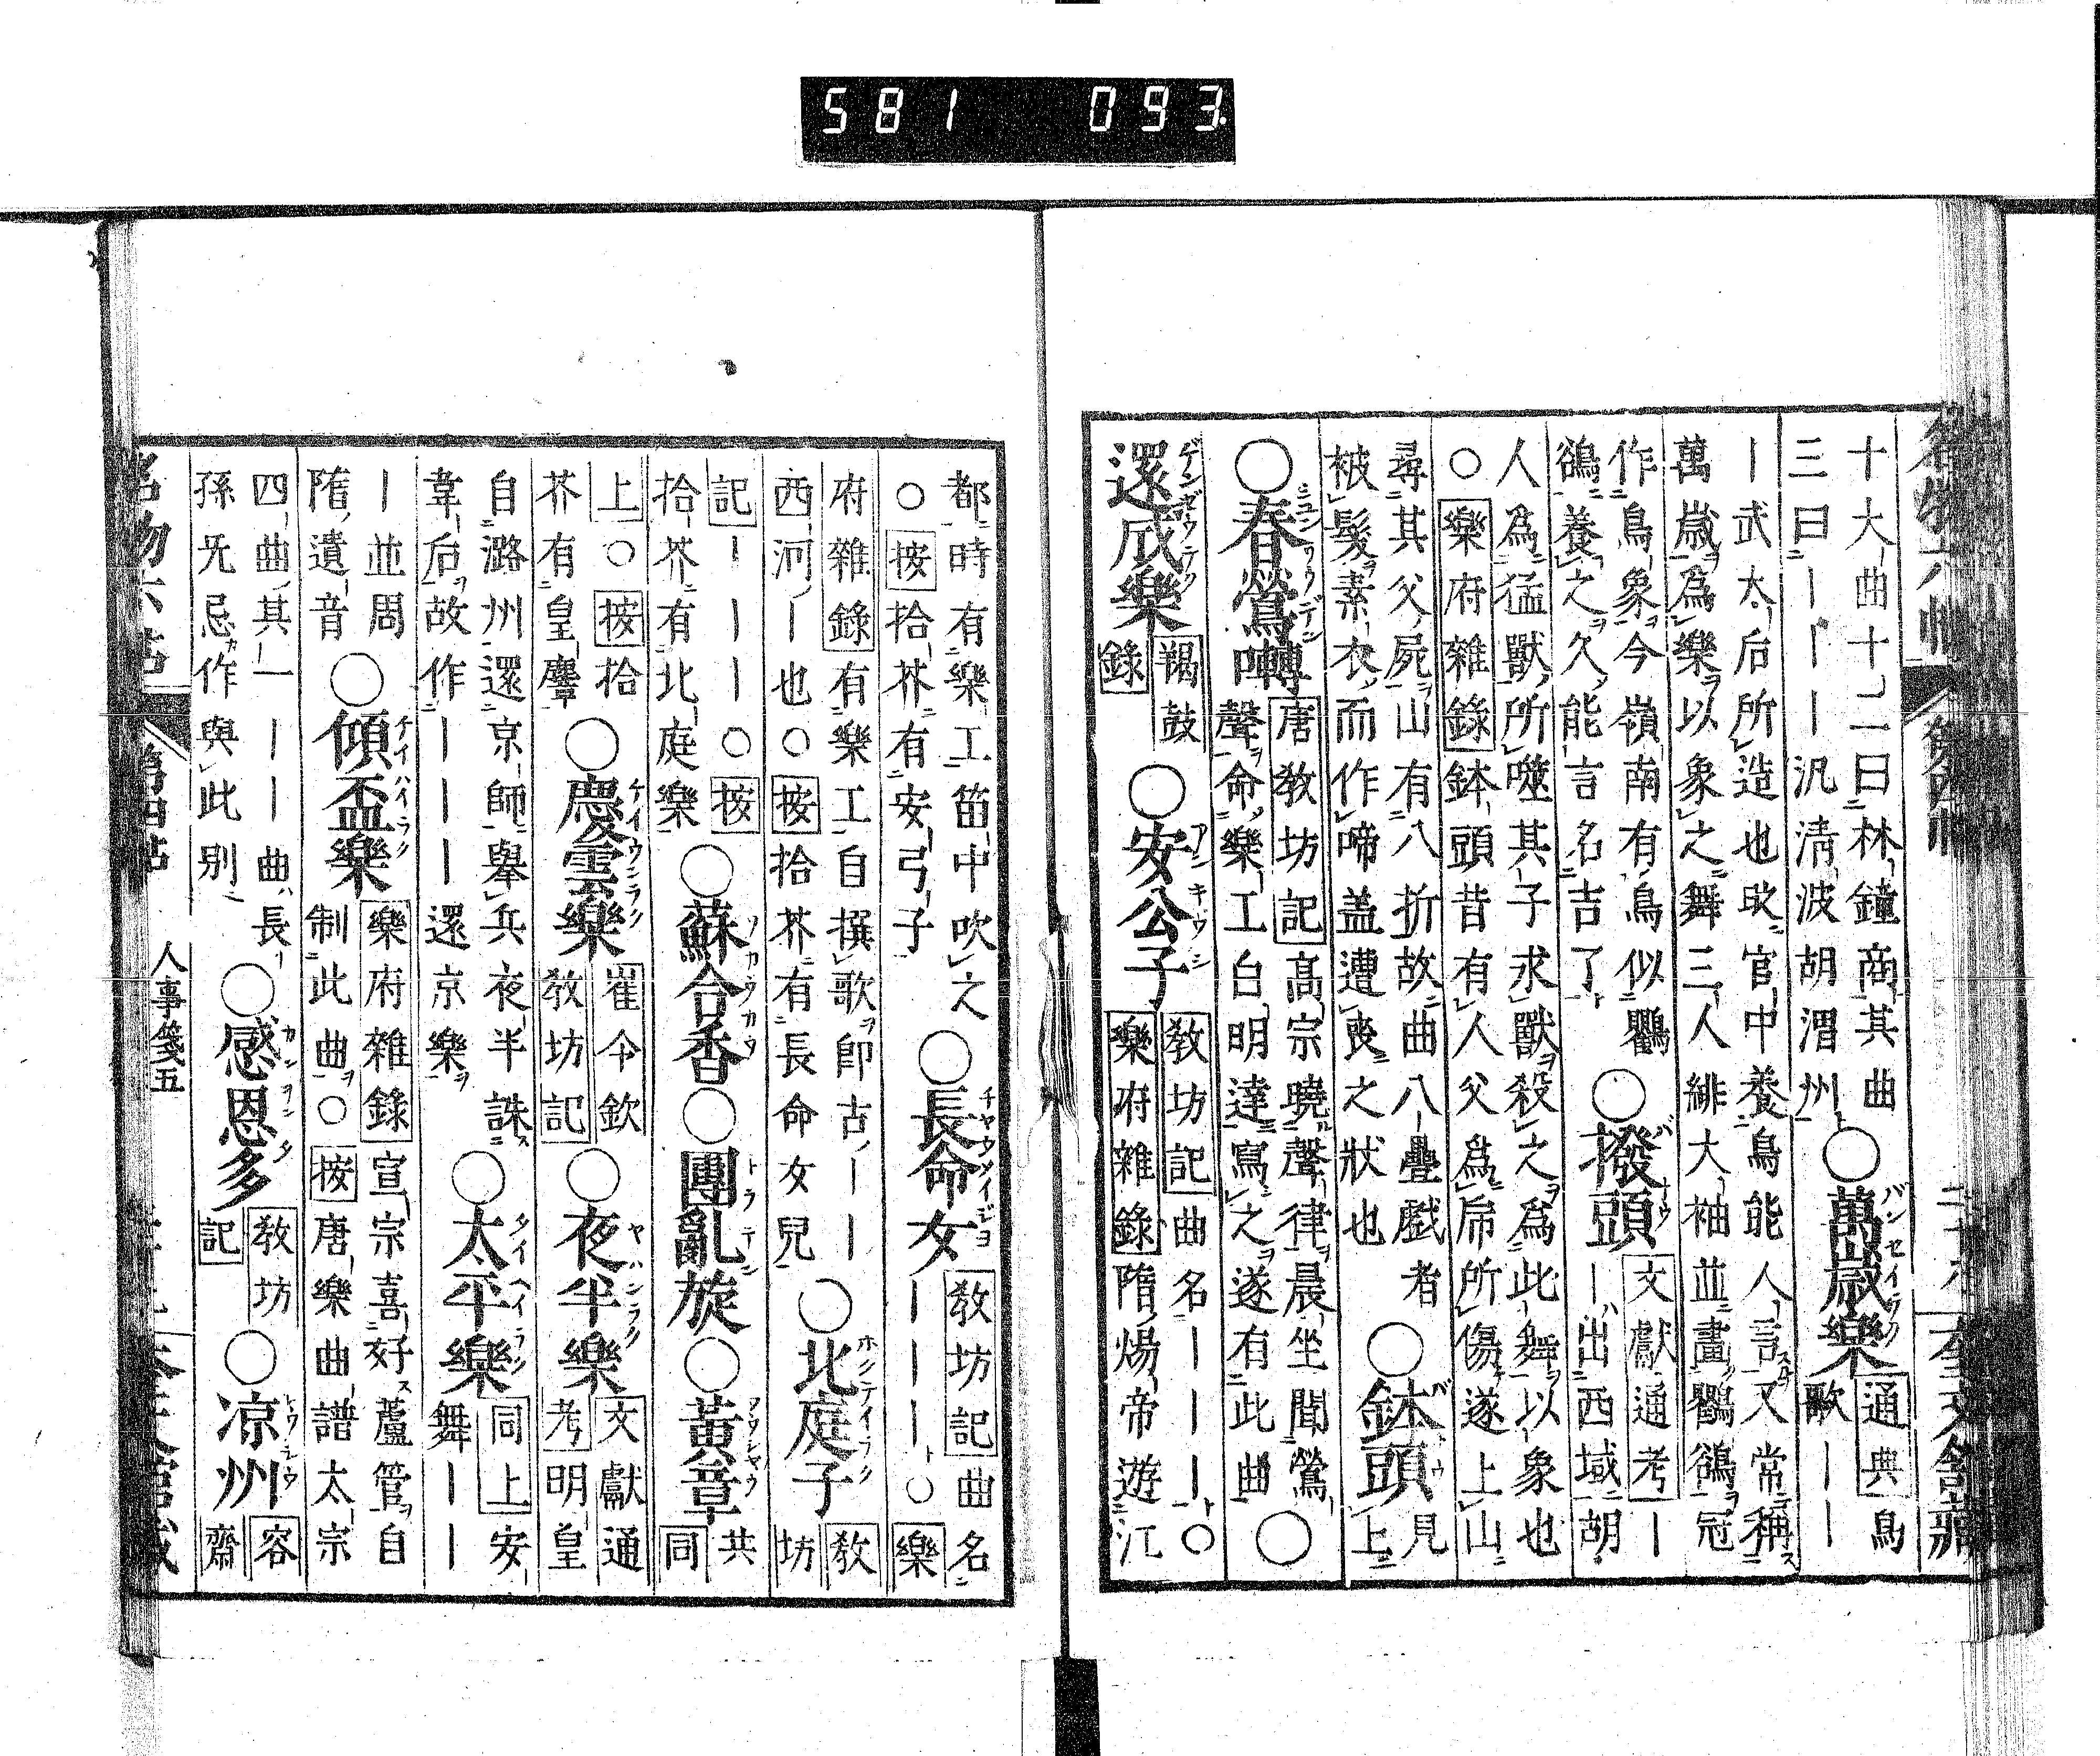 581 093
十大曲十二曰林鐘商其曲
三曰｜｜｜汎清波胡渭州
○萬歲樂
通典鳥歌｜｜
｜武太后所造也時宮中養鳥能人言又常稱
萬歲為樂以象之舞三人緋大袖並畫鸜鵒冠
作鳥象今嶺南有鳥似鸜
鵒養之久能言名吉了
○撥頭
文獻通考｜
｜出西域胡
人為猛獸所噬其子求獸殺之為此舞以象也
○樂府雜錄鉢頭昔有人父為虎所傷遂上山
尋其父屍山有八折故曲八疊戲者
被髮素衣而作啼盖遭喪之狀也
○鉢頭
見上
○春鶯囀
唐教坊記高宗曉聲律晨坐聞鶯
聲命樂工白明達寫之遂有此曲
○
還成樂
羯鼓錄
○安公子
教坊記曲名｜｜｜○
樂府雜錄隋煬帝遊江
都時有樂工笛中吹之
○按拾芥有安弓子
○長命女
教坊記曲名
｜｜｜○樂
府雜錄有樂工自撰歌即古｜｜
西河｜也○按拾芥有長命女兒
○北庭子
教坊
記｜｜｜○按
拾芥有北庭樂
○蘇合香
○團亂旋
○黃章
共同
上○按拾
芥有皇麞
○慶雲樂
崔令欽
教坊記
○夜半樂
文獻通考明皇
自潞州還京師舉兵夜半誅
韋后故作｜｜｜還京樂
○太平樂
同上安
舞｜｜
｜並周
隋遺音
○傾盃樂
樂府雜錄宣宗喜好蘆管自
制此曲○按唐樂曲譜太宗
四曲其一｜｜｜曲長
孫旡忌作與此別
○感恩多
教坊記
○凉州
容齋
名物六帖
第四帖
人事箋五